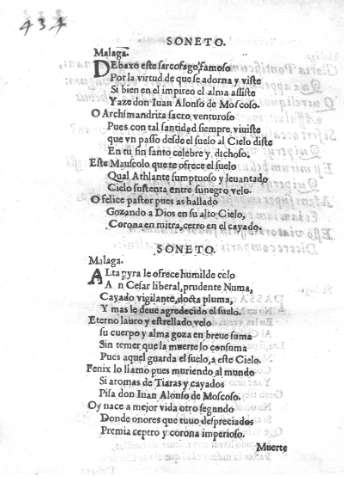 434
SONETO.
Malaga.
DEbaxo este sarcofago famoso
Por la virtud de que se adorna y viste
Si bien en el impireo el alma assiste
Yaze don Iuan Alonso de Moscoso.
O Archimandrita sacro venturoso
Pues con tal santidad siempre viuiste
que vn passo desde el suelo al Cielo diste
En tu fin santo celebre y dichoso.
Este Mauseolo que te ofrece el suelo
Qual Athlante sumptuoso y leuantado
Cielo sustenta entre su negro velo.
O felice pastor pues as hallado
Gozando a Dios en su alto Cielo,
Corona en mitra, cerro en el cayado.
SONETO.
Malaga.
ALta pyra le ofrece humilde celo
A n Cesar liberal, prudente Numa,
Cayado vigilante, docta pluma,
Y mas le deue agredecido el suelo.
Eterno lauro y estrellado velo
su cuerpo y alma goza en breve suma
Sin temer que la muerte lo consuma
Pues aquel guarda el suelo, a este Cielo.
Fenix lo llamo pues muriendo al mundo
Si aromas de Tiaras y cayados
Pisa don Iuan Alonso de Moscoso.
Oy nace a mejor vida otro segundo
Donde onores que tuuo despreciados
Premia cepero y corona imperioso.
Muerte